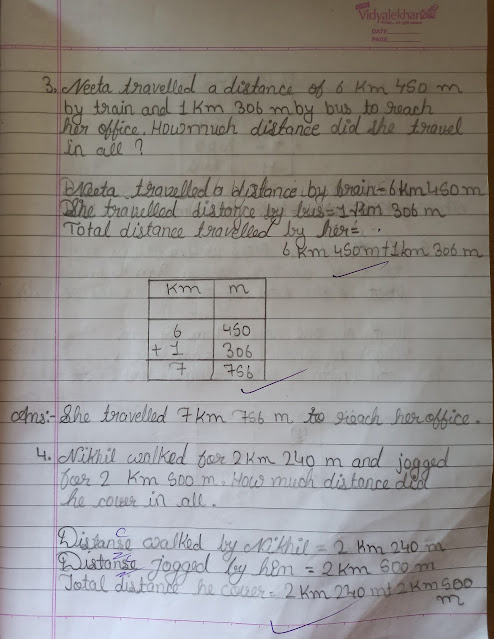 Vidyalekhan
DATE
PAGE
3. Neeta travelled a distance of 6 Km 450 m
by train and 1 Km 306 m by bus to reach
her office. How much distance did she travel
in all ?
Neeta travelled a distance by train = 6 Km 450 m
She travelled distance by bus = 1 Km 306 m
Total distance travelled by her =
6 Km 450 m + 1 km 306 m
Km m
6 450
+ 1 306
7 756
Ans:- She travelled 7 Km 756 m to reach her office.
4. Nikhil walked for 2 Km 240 m and jogged
for 2 Km 500 m. How much distance did
he cover in all .
c
Distanse walked by Nikhil = 2 Km 240 m
Distanse Jogged by him = 2 Km 500 m
Total distance he cover = 2 Km 240 m + 2 Km 500
m